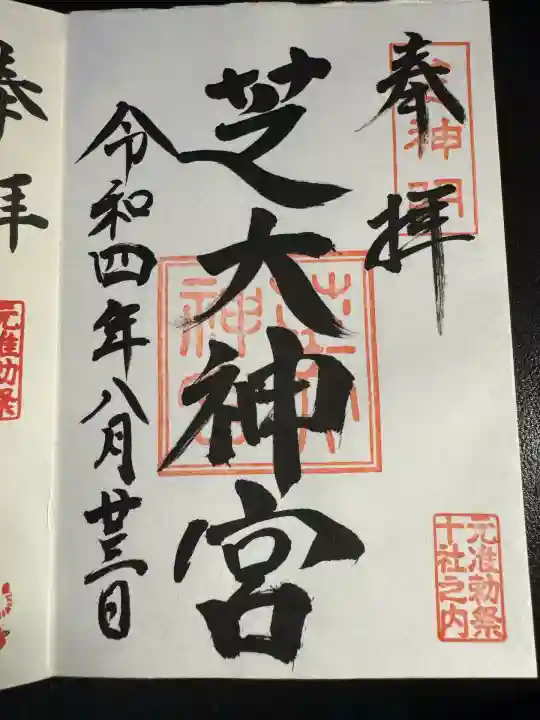 奉拝
芝大神宮
令和四年八月廿三日
元准勅祭
十社之内
奉拝
元准勅祭